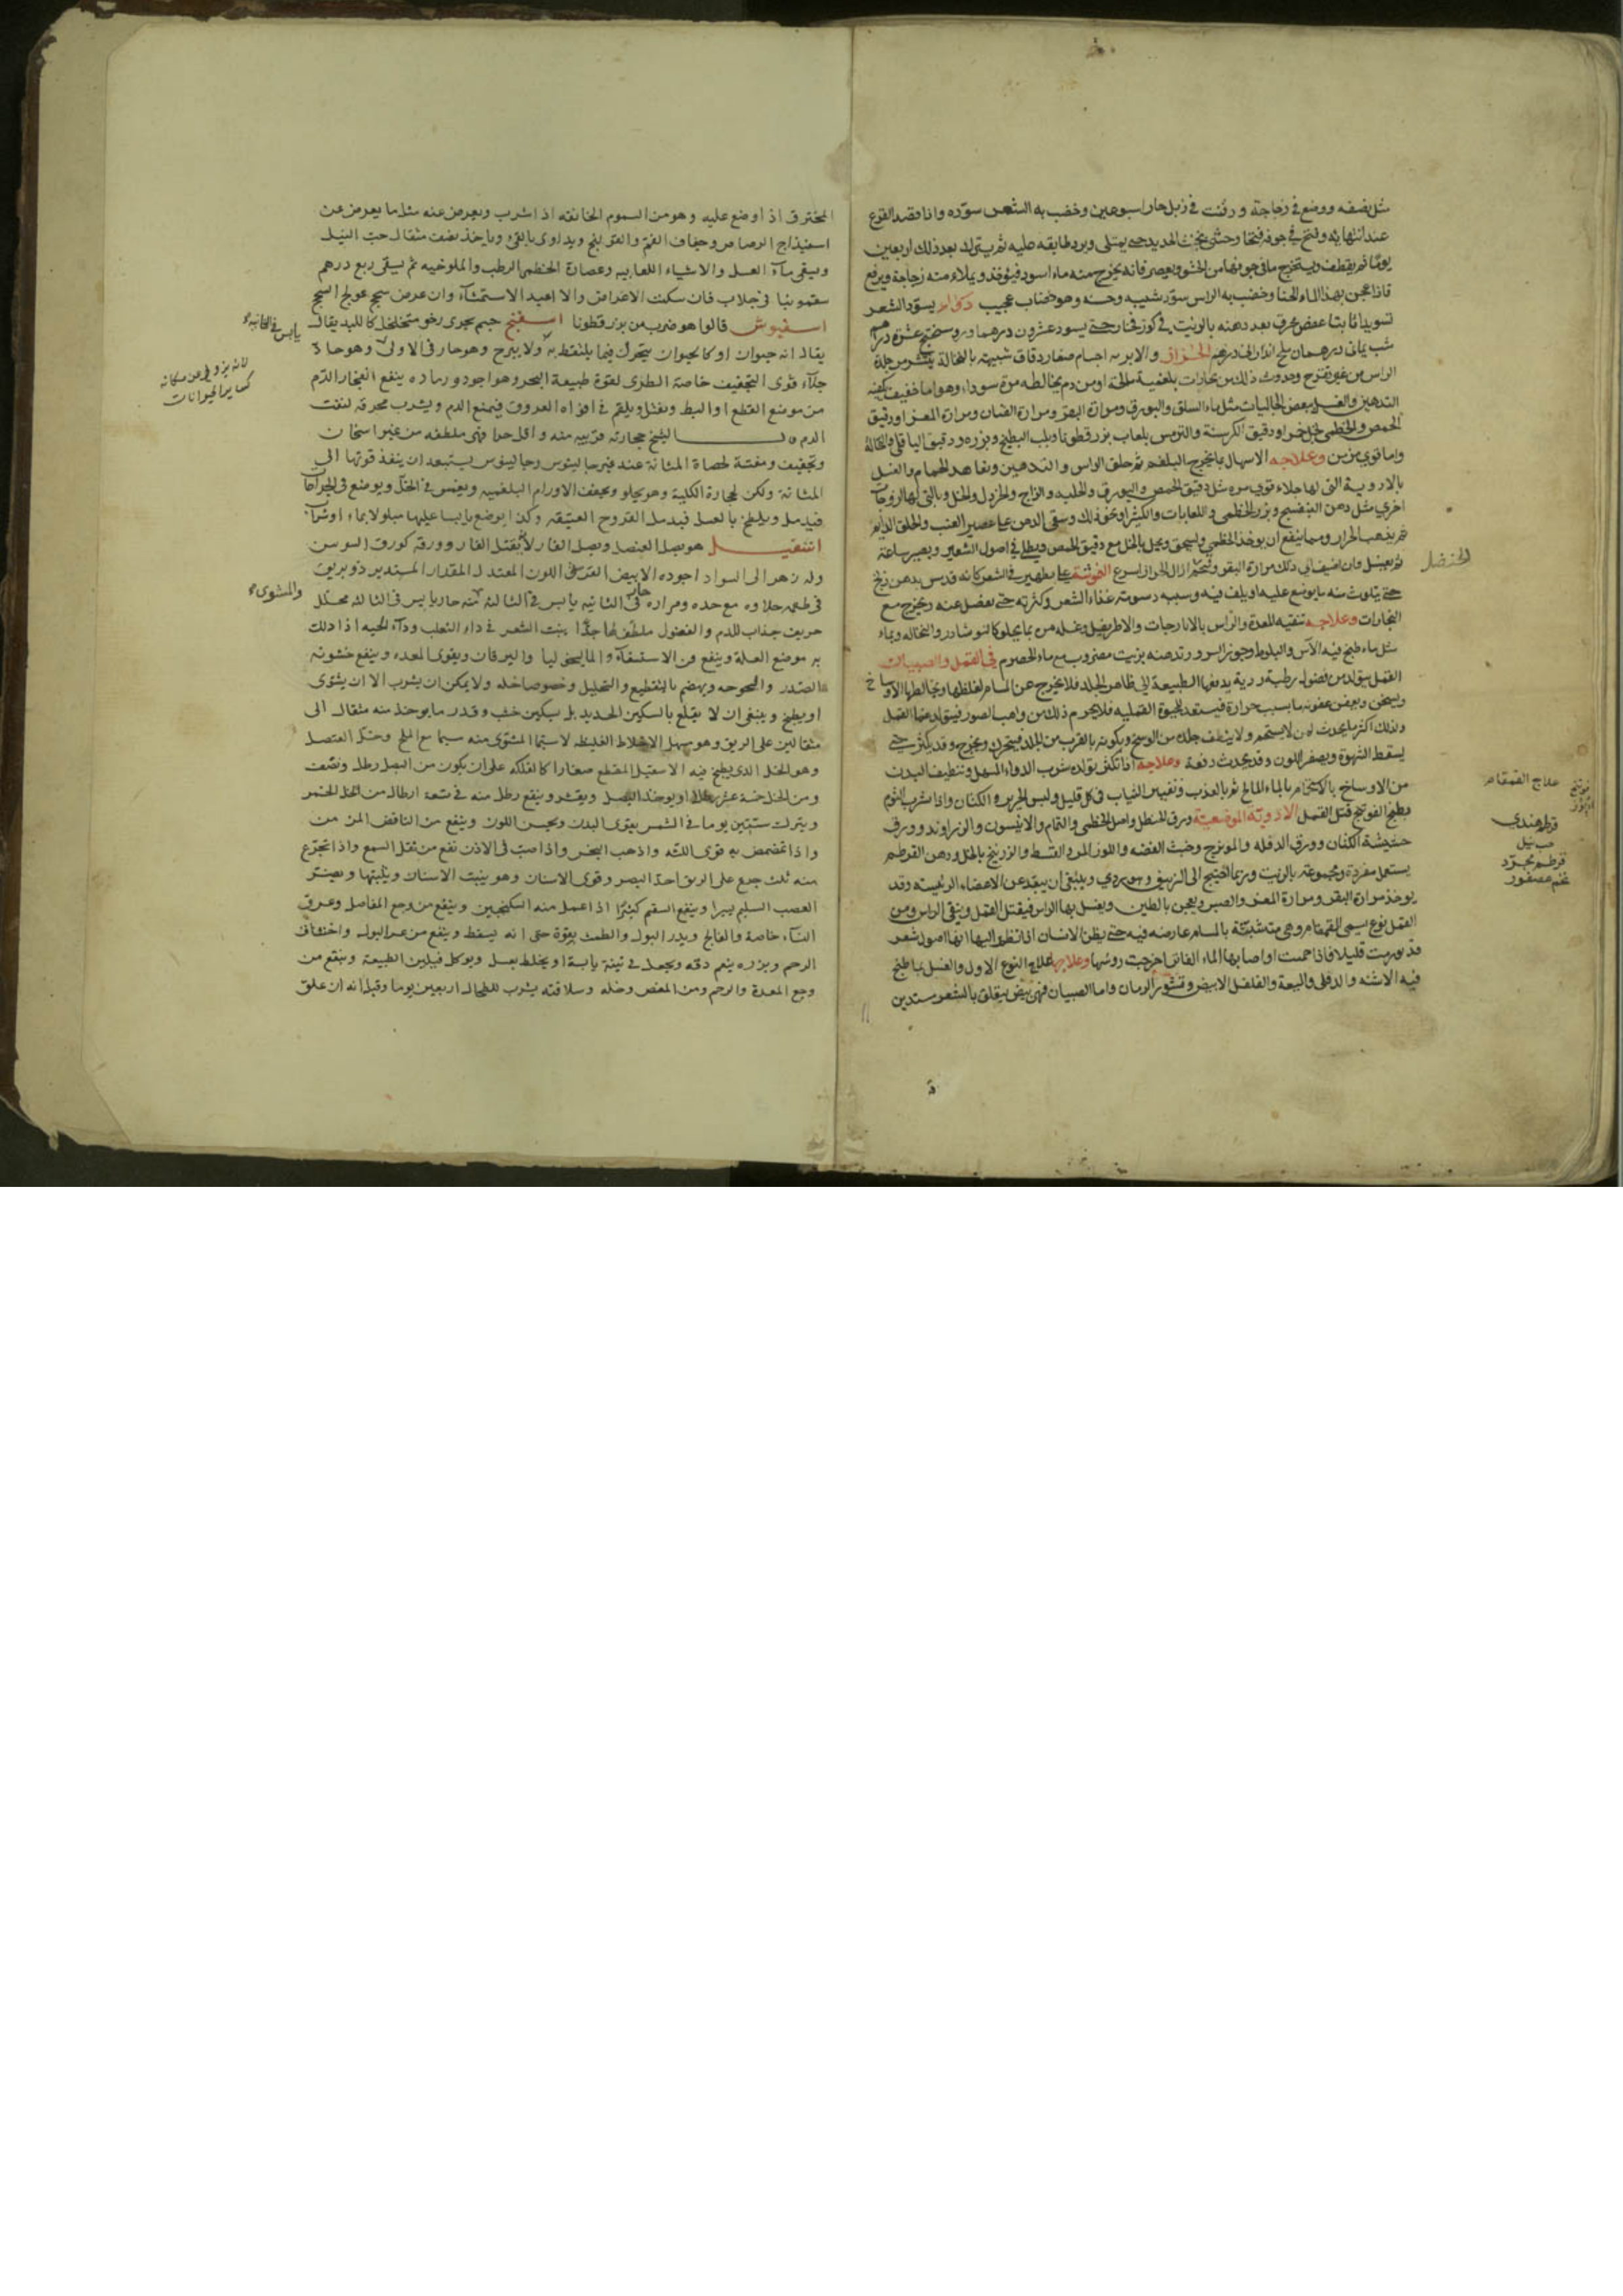 مثل نصفه ووضع في زجاجة ودفنت في زبل حار اسبوعين وخضب به الشعر سوّده واذا قصد القرع
عند انتهائه وفتح في جوفه فتحا وحشى بخبث الحديد حتى يمتلى ويرد طابقه عليه ثم يترك بعد ذلك اربعين
يومًا ثم يقطف ويستخرج ما في جوفها من الحشو ويعصر فانه يخرج منه ماء اسود فيؤخذ ويملاء منه زجاجة ويرفع
فاذا عجن بهذا الماء الحنا وخضب به الراس سوّد شيبه وحسنه وهو خضاب عجيب دواء يسوّد الشعر
تسويدا ثابتا عفص محرق بعد دهنه بالزيت في كوز فخار حتى يسود عشرون درهما وروسختج عشرة دراهم
شب يمانى درهمان ملح اندرانى درهم الحزاز والابرية اجسام صغار دقاق شبيهة بالنخالة ينتثر من جلدة
الراس من غير تقرح وحدوث ذلك من بخارات بلغمية مالحة او من دم يخالطه مرة سوداء وهو اما خفيف يكفيه
التدهين والغسل ببعض الجاليات مثل ماء السلق والبورق ومرارة البقر ومرارة الضان ومرارة المعز او دقيق
الحمص والخطمى بخل خمر او دقيق الكرسنة والترمس بلعاب بزر قطونا ولب البطيخ وبزره ودقيق الباقلى والنخالة
واما قوي مزمن وعلاجه الاسهال بما يخرج البلغم ثم حلق الراس والتدهين وتعاهد الحمام والغسل
بالادوية التى لها جلاء قوي مرة مثل دقيق الحمص والبورق والحلبه والزاج والخردل والخل وبالتى لها لزوجات
اخرى مثل دهن البنفسج وبزر الخطمى واللعابات والكثيرا ونحو ذلك وسقى الدهن على عصير العنب والحلق الدايم
ثم يذهب الحزاز ومما ينفع ان يوخذ الخطمى ويسحق ويحل بالخل مع دقيق الحمص ويطلى في اصول الشعر ويصبر ساعة
ثم يغسل وان اضيف الى ذلك مرارة البقر وشحم ازال الحزاز اسرع
حتى يتلوث منه ما يوضع عليه او يلف فيه وسببه دسومة غذاء الشعر وكثرته حتى يفضل عنه ويخرج مع
البخارات وعلاجه تنقيه المعدة والراس بالايارجات والاطريفل وغسله من بما يجلو كالنوشادر والنخاله وبماء
مثل ماء طبخ فيه الآس والبلوط وجوز السرو وتدهنه بزيت مضروب مع ماء الحصرم في القمل والصيبان
القمل يتولد من فضول رطبة ردية يدفعها الطبيعة الى ظاهر الجلد فلا يخرج عن المسام لغلظها ويخالطها الاوساخ
ويسخن وبعض عفونه ما بسبب حرارة فيستعد للحيوة القمليه فلا يحرم ذلك من واهب الصور فيتولد عنها القمل
وذلك اكثر ما يحدث لمن لا يستحم ولا ينظف جلده من الوسخ ويكونه بالقرب من الجلد فيتحرك ويخرج وقد يكثر حتى
يسقط الشهوة ويصفر اللون وقد يحدث دفعة وعلاجه اذا تكثر تولده شرب الدواء المسهل وتنظيف البدن
من الاوساخ بالاستحمام بالماء المالح ثم بالعذب وتغيير الثياب في كل قليل ولبس الحرير والكتان واذا شرب الثوم
بطبيخ الفوتنج قتل القمل الادوية الموضعية ورق الحنظل واصل الخطمى والنمام والانيسون والزراوند وورق
حشيشة الكتان وورق الدفله والمويزج وخبث الفضه واللوز المر والقسط والزرنيخ بالخل ودهن القرطم
يستعمل مفردة ومجموعة بالزيت وربما احتيج الى الزيبق وهو ردي وينبغى ان يبعد عن الاعضاء الرئيسه وقد
يوخذ مرارة البقر ومرارة المعز والصبر ويعجن بالطين ويغسل بها الراس فيقتل القمل وينقى الراس ومن
القمل نوع يسمى القمقام وهى متشبثة بالمسام عارضه فيه حتى يظن الانسان اذا نظر اليها انها اصول شعر
قد نورت قليلا فاذا حميت او اصابها الماء الفاتر اخرجت روسها وعلاجها علاج النوع الاول والغسل بما طبخ
فيه الاشنه والدفلى والميعة والفلفل الابيض وقشور الرمان واما الصيبان فهى بيض يتعلق بالشعر مستدير
الحنضل
علاج القمقام
قرطم هندى
حب نيل
قرطم مجرّد
تخم عصفور
المخترق اذا وضع عليه وهو من السموم الخانقه اذا شرب ويعرض عنه مثل ما يعرض عن
اسفيذاج الرصاص وجفاف الفم والقولنج ويداوى بالقئ ويأخذ نصف مثقال حب النيل
ويسقى ماء العسل والاشياء اللعابيه وعصارة الخطمى الرطب والملوخيه ثم يسقى ربع درهم
سقمونيا في جلاب فان سكنت الاعراض والا اعيد الاستمشاء وان عرض سحج عولج السحج
اسفيوش قالوا هو ضرب من بزر قطونا اسفنج جسم بحرى رخو متخلخل كاللبد يقال
يقال انه حيوان او كالحيوان يتحرك فيما يلتقط به ولا يبرح وهو حار في الاولى وهو حاد
جلاء قوى التجفيف خاصة الطرى لقوة طبيعة البحر وهو اجود ورماده ينفع انفجار الدم
من موضع القطع او البط ويفتل ويلقم في افواه العروق فيمنع الدم ويشرب محرقه لنفث
الدم حجارته قريبه منه واقل حرا فهى ملطفه من غير اسخان
وتجفيف ومفتتة لحصاة المثانة عند غير جالينوس وجالينوس يستبعد ان ينفذ قوتها الى
المثانة ولكن لحجارة الكلية وهو يجلو ويجفف الاورام البلغميه ويغمس في الخل ويوضع في الجراحات
فيدمل ويطبخ بالعسل فيدمل القروح العتيقه وكذا يوضع يابسا عليها مبلولا بماء او شراب
اشقيل هو بصل العنصل وبصل الفار لانه يقتل الفار وورقه كورق السوسن
وله زهر الى السواد اجوده الابيض اللون المعتدل المقدار المستدير ذو بريق
في طعمه حلاوه مع حده ومراره حار في الثانيه يابس في الثالثه منه حار يابس في الثالثه محلل
حريف جذاب للدم والفضول ملطف لها جدًا ينبت الشعر في داء الثعلب وداء الحيه اذا دلك
به موضع العلة وينفع من الاستسقاء والماليخوليا واليرقان ويقوى المعده وينفع خشونه
الصدر والبحوحه ويهضم بالتقطيع والتحليل وخصوصا خله ولا يمكن ان يشرب الا ان يشوى
او يطبخ وينبغى ان لا يقلع بالسكين الحديد بل بسكين خشب وقدر ما يوخذ منه مثقال الى
مثقالين على الريق وهو يسهل الاخلاط الغليظه لا سيما المشوى منه سيما مع الملح وخل العنصل
وهو الخل الذى يطبخ فيه الاسقيل المقطع صغارا كالفلكه على ان يكون من البصل رطل ونصف
ومن الخل خمسة عشر رطلا او يوخذ البصل ويقشر وينقع رطل منه في تسعة ارطال من الخل الخمر
ويترك ستين يوما في الشمس يقوى البدن ويحسن اللون وينفع من النافض المزمن
واذا تمضمض به قوى اللثه واذهب البخر واذا صب في الاذن نفع من ثقل السمع واذا تجرّع
منه ثلث جرع على الريق احدّ البصر وقوى الاسنان وهو يثبت الاسنان ويثبتها ويضر
العصب السليم يسيرا وينفع السقيم كثيرًا اذا عمل منه السكنجبين وينفع من وجع المفاصل وعرق
النساء خاصة والفالج ويدر البول والطمث بقوة حتى انه يسقط وينفع من عسر البول واختناق
الرحم وبزره ينعم دقه ويجعل في تينة يابسة او يخلط بعسل ويوكل فيلين الطبيعة وينفع من
وجع المعدة والرحم ومن المغص وخله وسلاقته يشرب للطحال اربعين يوما وقيل انه ان علق
يابس في الثانيه
لانه يزول عن مكانه
كساير الحيوانات
والمشوى